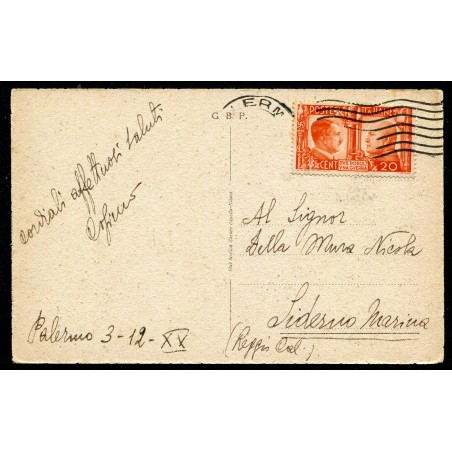 cordiali affettuosi saluti
Palermo 3-12-XX
G. B. P.
POSTE ITALIANE
CENT 20
Al Signor
Della Mura Nicola
Siderno Marina
(Reggio Cal.)